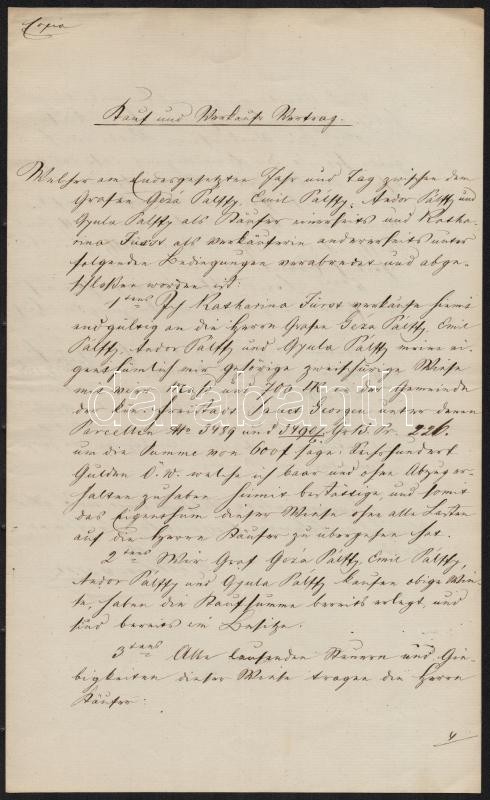 Copia
Kauf und Verkaufs Vertrag.
Welcher am Endesgesetzten Jahr und Tag zwischen dem
Grafen Géza Pálffy, Emil Pálffy, Andor Pálffy und
Gyula Pálffy als Käufer einerseits und Katha-
rina Turot als Verkäuferin andererseits unter
folgenden Bedingungen verabredet und abge-
schloßen worden ist:
1tens Ich Katharina Turot verkaufe hiemit
endgültig an die Herrn Grafen Géza Pálffy, Emil
Pálffy, Andor Pálffy und Gyula Pálffy meine ei-
genthümlich mir gehörige zweischürige Wiese
von 700 in der Gemeinde
der königl Freistadt Sanct Georgen unter deren
Parcellen No 3489 und 3490/ Grdb Nr. 226.
um die Summe von 600 f sage: Sechshundert
Gulden Ö.W. welche ich baar und ohne Abzug er-
halten zu haben hiemit bestättige, und somit
das Eigenthum dieser Wiese ohne alle Lasten
auf die Herrn Käufer zu übergehen hat.
2tens Wir Graf Géza Pálffy, Emil Pálffy,
Andor Pálffy und Gyula Pálffy kaufen obige Wie-
se, haben die Kaufsumme bereits erlegt, und
sind bereits im Besitze.
3tens Alle laufenden Steuern und Gie-
bigkeiten dieser Wiese tragen die Herrn
Käufer.
darabanth